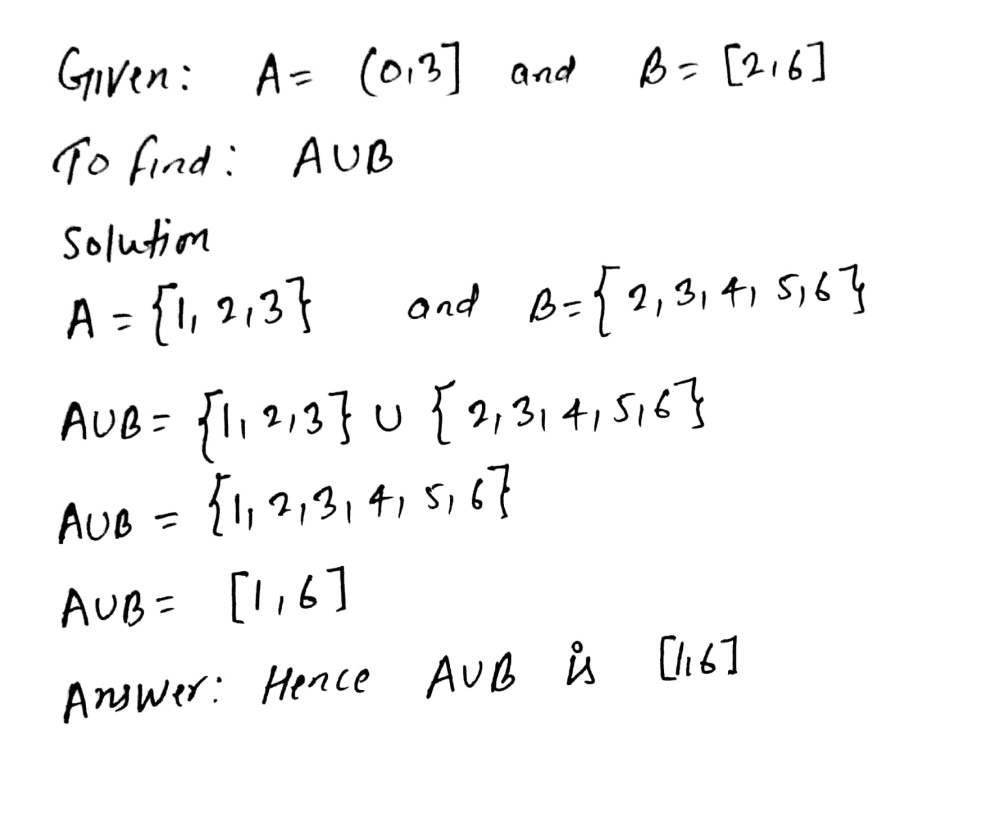 Given: A = (0,3] and B = [2,6]
To find: A∪B
Solution
A = {1, 2, 3} and B = {2, 3, 4, 5, 6}
A∪B = {1, 2, 3} ∪ {2, 3, 4, 5, 6}
A∪B = {1, 2, 3, 4, 5, 6}
A∪B = [1, 6]
Answer: Hence A∪B is [1,6]